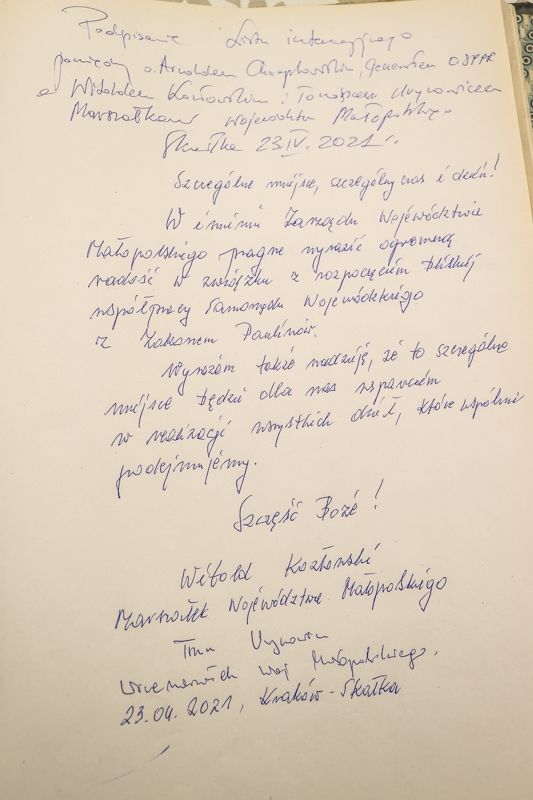 Podpisanie Listu intencyjnego
pomiędzy o. Arnoldem Chrapkowskim, Generałem OSPPE
a Witoldem Kozłowskim i Tomaszem Urynowiczem
Marszałkami Województwa Małopolskiego
Skałka 23.IV.2021 r.
Szczególne miejsce, szczególny czas i dzień!
W imieniu Zarządu Województwa
Małopolskiego pragnę wyrazić ogromną
radość w związku z rozpoczęciem bliskiej
współpracy Samorządu Wojewódzkiego
z Zakonem Paulinów.
Wyrażam także nadzieję, że to szczególne
miejsce będzie dla nas wsparciem
w realizacji wszystkich dzieł, które wspólnie
podejmujemy.
Szczęść Boże!
Witold Kozłowski
Marszałek Województwa Małopolskiego
Urynowicz
Wicemarszałek Woj. Małopolskiego.
23.04.2021, Kraków-Skałka